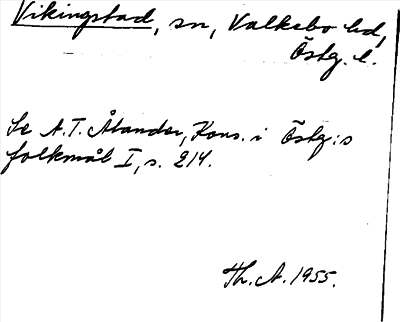 Vikingstad, sn, Valkebo hd,
Östg. l.
Se A.T. Ålander, Kons. i Östg:s
folkmål I, s. 214.
Th. A. 1955.